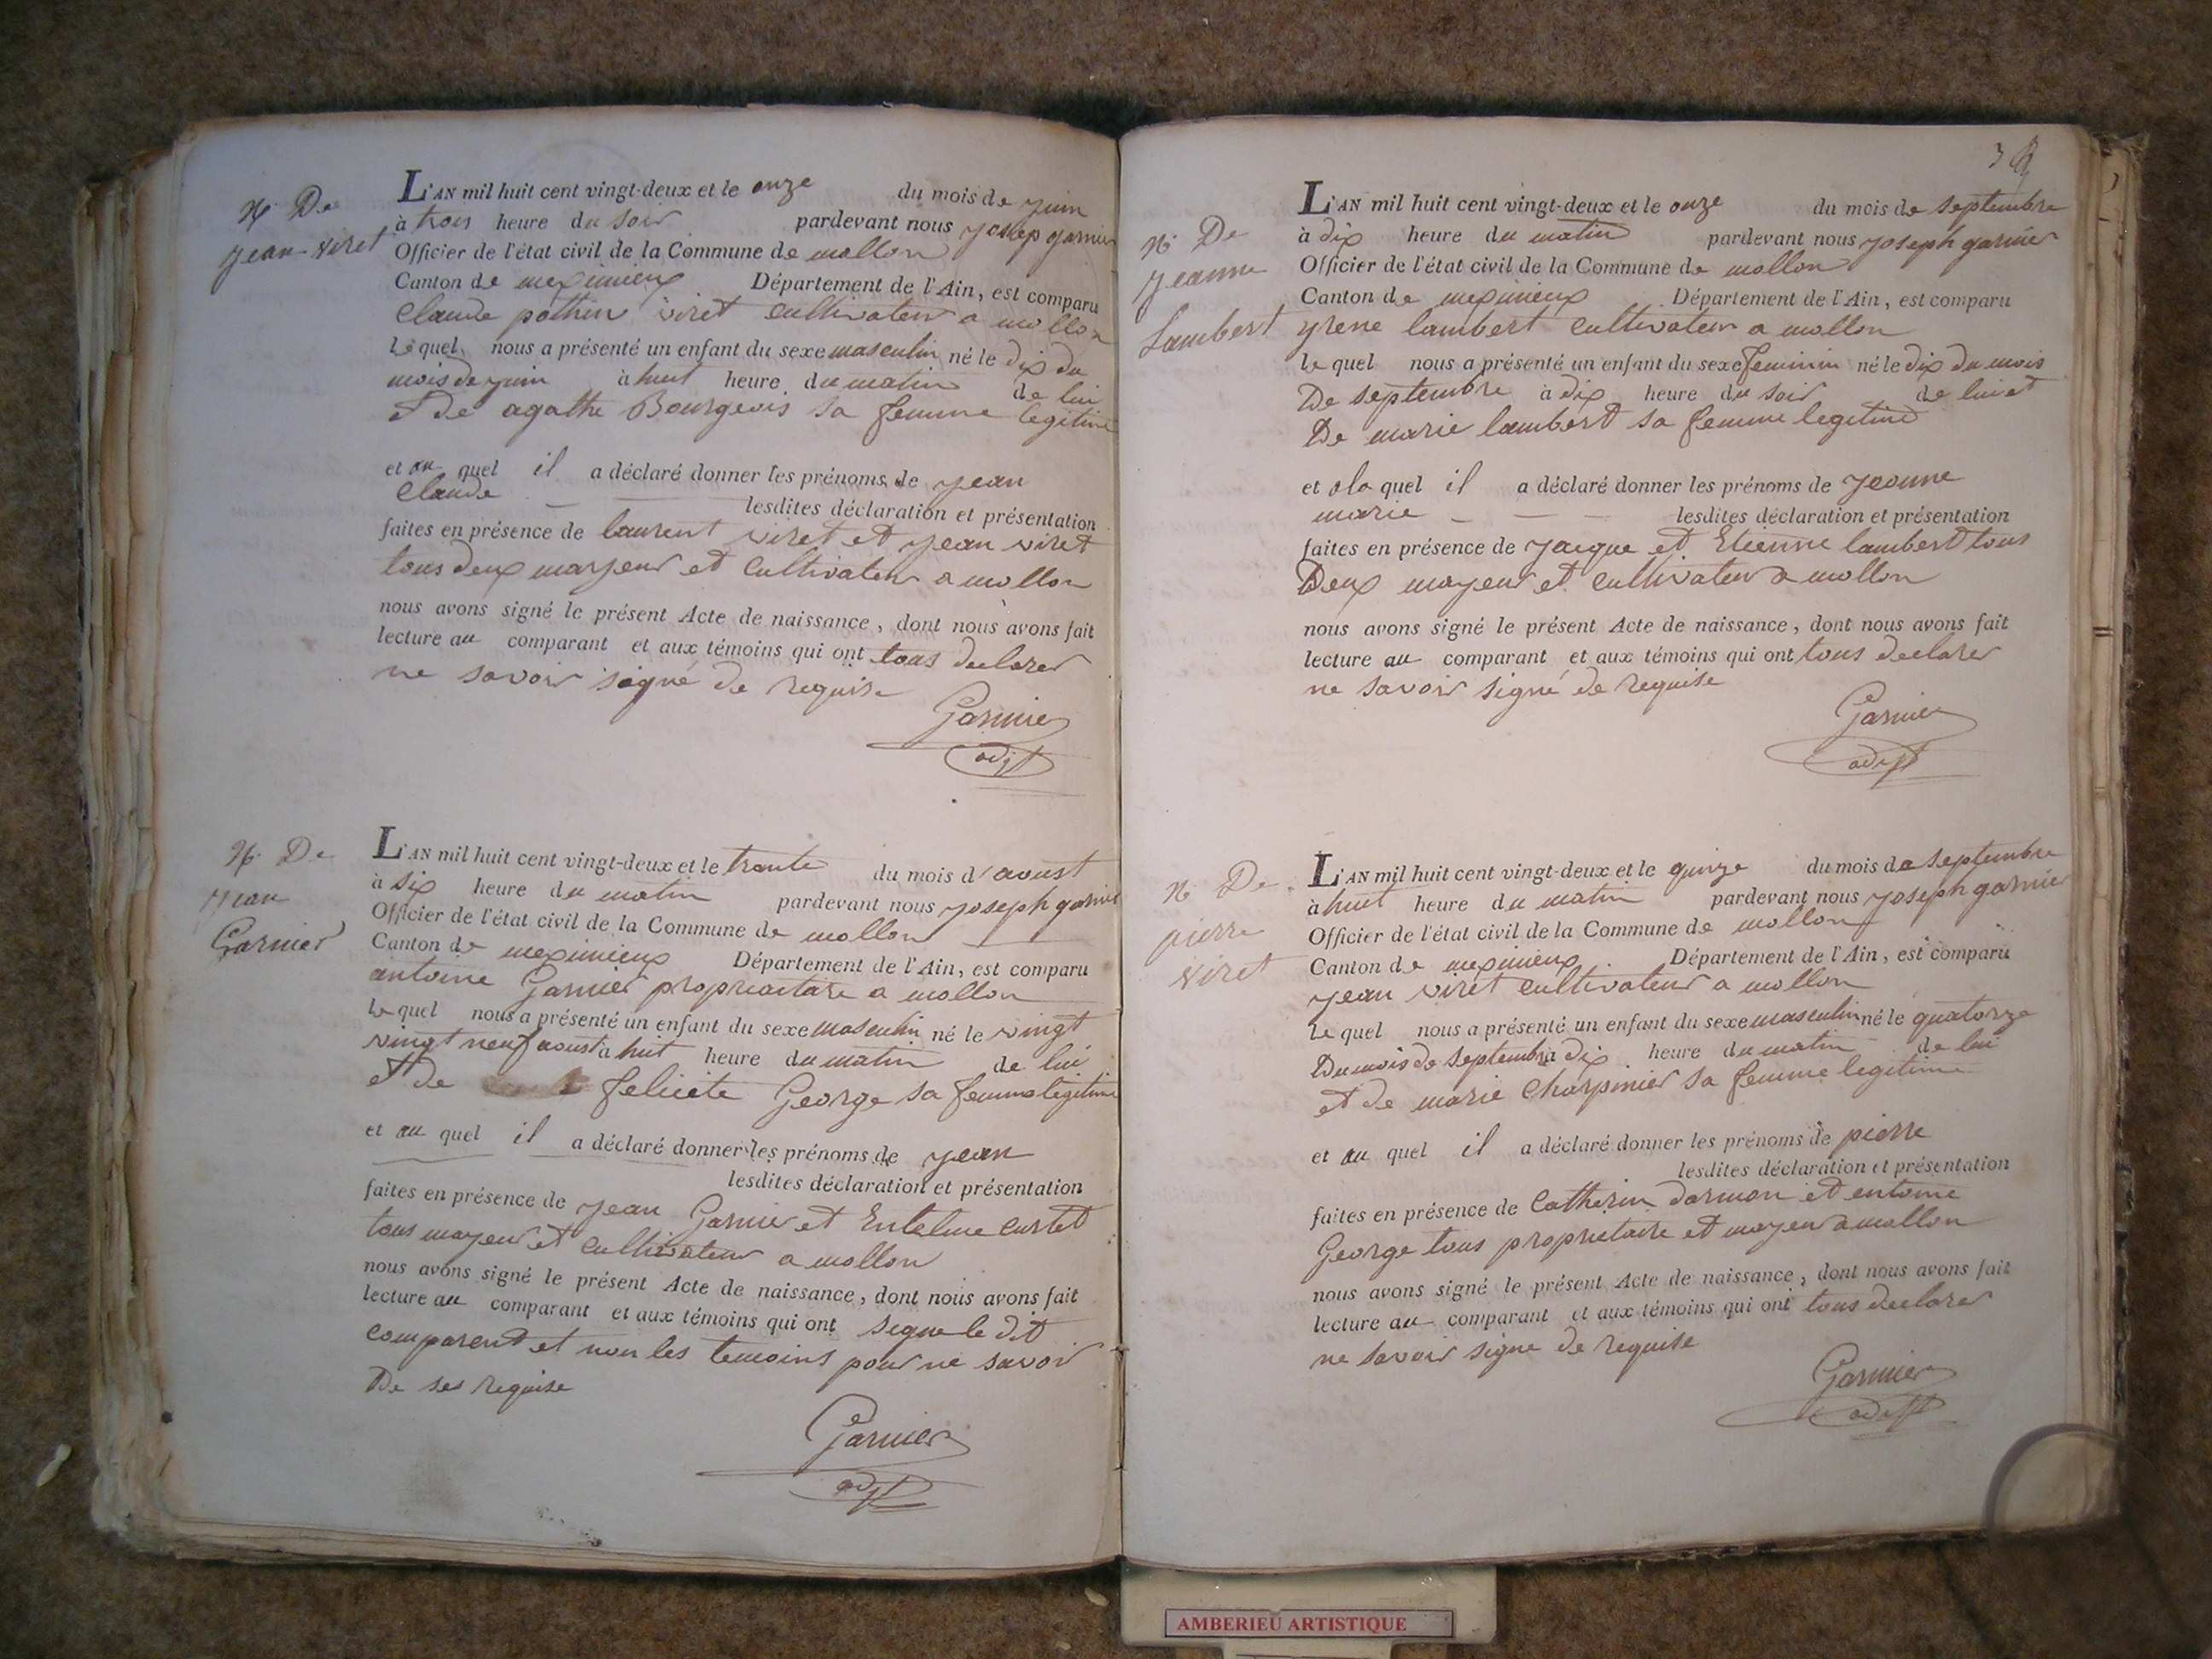 N. De
jean-viret
L'AN mil huit cent vingt-deux et le onze du mois de juin
à trois heure du soir pardevant nous josep garnier
Officier de l'état civil de la Commune de mollon
Canton de meximieux Département de l'Ain, est comparu
Claude pothin viret cultivateur a mollon
Lequel nous a présenté un enfant du sexe masculin né le dix du
mois de juin à huit heure du matin de lui
et de agathe Bourgeois sa femme legitime
et au quel il a déclaré donner les prénoms de jean
Claude lesdites déclaration et présentation
faites en présence de laurent viret et jean viret
tous deux marjeur et Cultivateur a mollon
nous avons signé le présent Acte de naissance, dont nous avons fait
lecture au comparant et aux témoins qui ont tous declarer
ne savoir signé de requise
Garnier
adjt
N. De
jean
Garnier
L'AN mil huit cent vingt-deux et le trante du mois d'aoust
à six heure du matin pardevant nous joseph garnier
Officier de l'état civil de la Commune de mollon
Canton de meximieux Département de l'Ain, est comparu
antoine Garnier propriaitare a mollon
Le quel nous a présenté un enfant du sexe masculin né le vingt
vingt neuf aoust à huit heure du matin de lui
et de felicite George sa femme legitime
et au quel il a déclaré donner les prénoms de jean
lesdites déclaration et présentation
faites en présence de jean Garnier et Entelme curtet
tous mayeur et cultivateur a mollon
nous avons signé le présent Acte de naissance, dont nous avons fait
lecture au comparant et aux témoins qui ont signe le dit
comparent et non les temoins pour ne savoir
De ses requise
Garnier
adjt
3
N. De
jeanne
Lambert
L'AN mil huit cent vingt-deux et le onze du mois de septembre
à dix heure du matin pardevant nous joseph garnier
Officier de l'état civil de la Commune de mollon
Canton de meximieux Département de l'Ain, est comparu
yrene lambert cultivateur a mollon
le quel nous a présenté un enfant du sexe feminin né le dix du mois
De septembre à dix heure du soir de lui et
De marie lambert sa femme legitime
et a la quel il a déclaré donner les prénoms de jeanne
marie lesdites déclaration et présentation
faites en présence de jacque et Etienne lambert tous
Deux mayeur et cultivateur a mollon
nous avons signé le présent Acte de naissance, dont nous avons fait
lecture au comparant et aux témoins qui ont tous declarer
ne savoir signé de requise
Garnier
adjt
N De
pierre
viret
L'AN mil huit cent vingt-deux et le quinze du mois de septembre
à huit heure du matin pardevant nous joseph garnier
Officier de l'état civil de la Commune de mollon
Canton de meximieux Département de l'Ain, est comparu
jean viret cultivateur a mollon
Le quel nous a présenté un enfant du sexe masculin né le quatorze
Du mois de septembre à dix heure du matin de lui
et de marie Charpinier sa femme legitime
et au quel il a déclaré donner les prénoms de pierre
lesdites déclaration et présentation
faites en présence de Catherin darmon et entoine
George tous proprietaire et mayeur a mollon
nous avons signé le présent Acte de naissance, dont nous avons fait
lecture au comparant et aux témoins qui ont tous declarer
ne savoir signe de requise
Garnier
adjt
AMBERIEU ARTISTIQUE